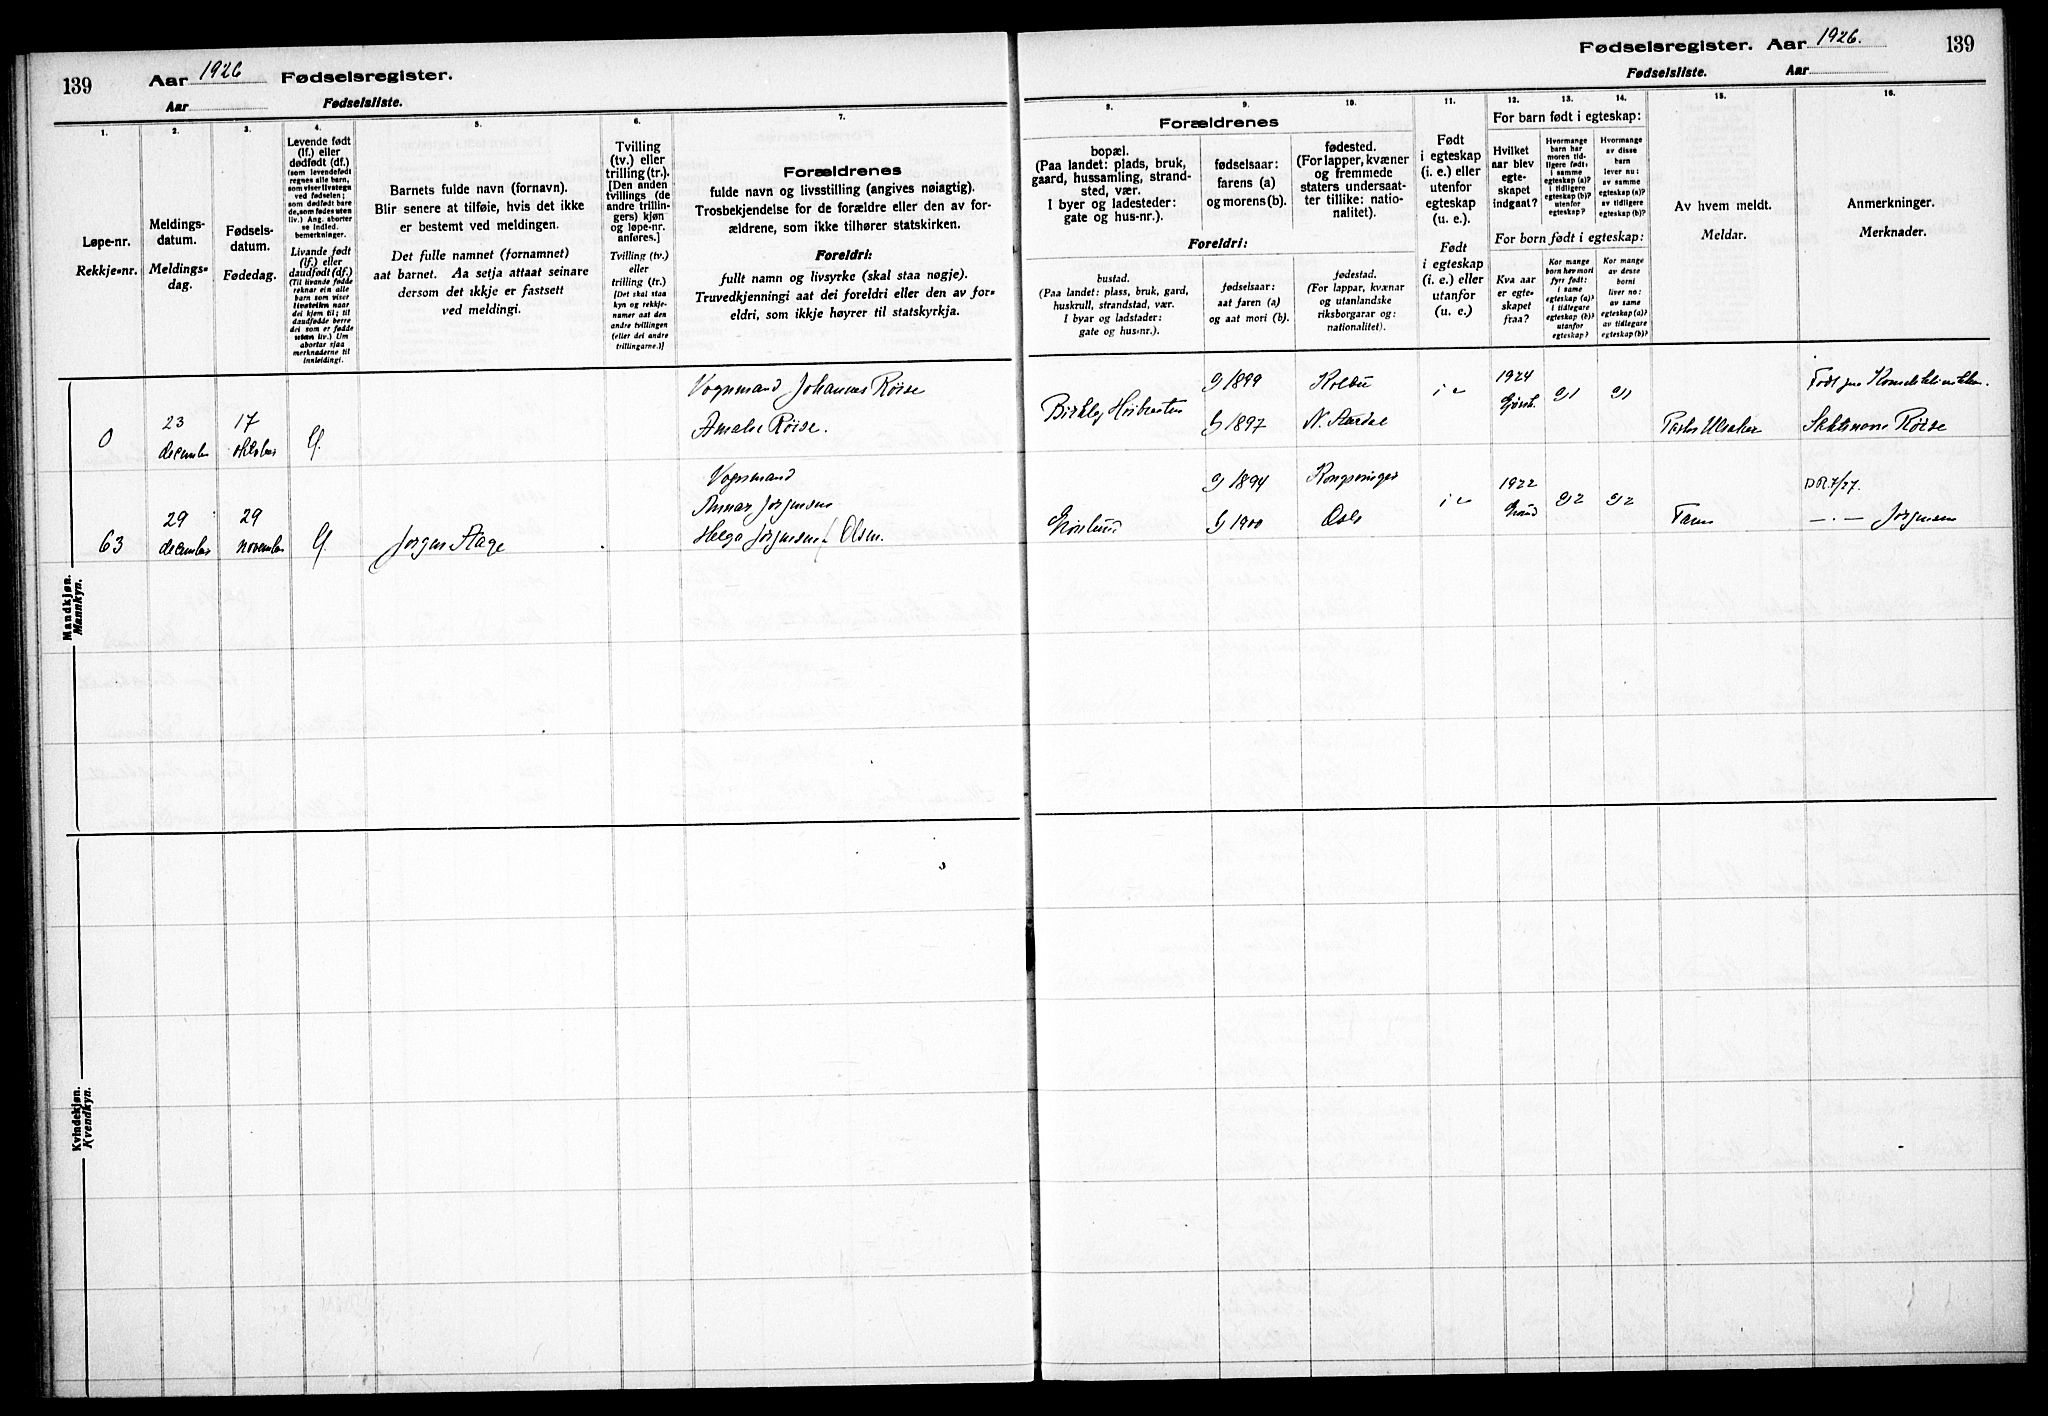 139
Aar 1926 Fødselsregister.
Aar Fødselsliste.
1.
2.
3.
4.
5.
6.
7.
Løpe-nr.
Rekkje-nr.
Meldings-
datum.
Meldings-
dag.
Fødsels-
datum.
Fødedag.
Levende født
(lf.) eller
dødfødt (df.)
(som levendefødt
regnes alle barn,
som viser livstegn
ved fødselen;
som dødfødt bare
de, som fødes uten
liv.) Ang. aborter
se indled.
bemerkninger.
Livande født
(lf.) eller
daudfødt (df.)
(Til livande fødde
reknar ein alle
barn som viser
livsteikn naar
dei kjem til; til
daudfødde berre
dei som er fødde
utan liv.) Um
abortar sjaa
merknaderne til
innleidingi.
Barnets fulde navn (fornavn).
Blir senere at tilføie, hvis det ikke
er bestemt ved meldingen.
Det fulle namnet (fornamnet)
aat barnet. Aa setja attaat seinare
dersom det ikkje er fastsett
ved meldingi.
Tvilling
(tv.) eller
trilling (tr.).
[Den anden
tvillings (de
andre trillin-
gers) kjøn
og løpe-nr.
anføres.]
Tvilling (tv.)
eller
trilling (tr.)
[Det skal staa
kyn og rekkje-
numer aat den
andre tvillingen
(eller dei andre
trillingarne.)]
Forældrenes
fulde navn og livsstilling (angives nøiagtig).
Trosbekjendelse for de forældre eller den av for-
ældrene, som ikke tilhører statskirken.
Foreldri:
fullt namn og livsyrke (skal staa nøgje).
Truvedkjenningi aat dei foreldri eller den av for-
eldri, som ikkje høyrer til statskyrkja.
Mandkjøn.
Mannkyn.
0
23
december
17
oktober
lf.
Vognmand Johannes Røise
Amalie Røise.
63
29
december
29
november
lf.
Jørgen Aage
Vognmand
Jørgensen
Helga Jørgensen f. Olsen.
Kvindekjøn.
Kvendkyn.
Fødselsregister. Aar 1926. 139
Fødselsliste. Aar
8.
9.
10.
11.
12.
13.
14.
15.
16.
Forældrenes
bopæl.
(Paa landet: plads, bruk,
gaard, hussamling, strand-
sted, vær.
I byer og ladesteder:
gate og hus-nr.).
fødselsaar:
farens (a)
og morens (b).
fødested.
(For lapper, kvæner
og fremmede
staters undersaat-
ter tillike: natio-
nalitet).
Foreldri:
bustad.
(Paa landet: plass, bruk, gard,
huskrull, strandstad, vær.
I byar og ladstader:
gate og hus-nr.).
fødselsaar:
aat faren (a)
og aat mori (b).
fødestad.
(For lappar, kvænar
og utanlandske
riksborgarar og:
nationalitet).
Født
i egteskap
(i. e.) eller
utenfor
egteskap
(u. e.).
Født
i egteskap
(i. e.) eller
utanfor
(u. e.)
For barn født i egteskap:
Hvilket
aar blev
egte-
skapet
indgaat?
Hvormange
barn har
moren tid-
ligere født:
i samme
egteskap (a)?
i tidligere
egteskap (b)?
utenfor
egteskap?
Hvormange
av disse
barn
lever nu:
av samme
egteskap (a)?
av tidligere
egteskap (b)?
For born født i egteskap:
Kva aar
er egte-
skapet
fraa?
Kor mange
born hev mori
fyrr født:
i same
egteskap (a)?
i tidlegare
egteskap (b)?
utanfor
egteskap?
Kor mange
av desse
borni
liver no:
av same
egteskap (a)?
av tidlegare
egteskap (b)?
Av hvem meldt.
Meldar.
Anmerkninger.
Merknader.
a) 1899
b) 1897
Kolbu
N. Aurdal
i e
1924
a) 1
a) 1
Røise
a) 1894
b) 1900
Kongsvinger
Oslo
i e
1922
a) 2
a) 2
Faren
7/27.
— · — Jørgensen